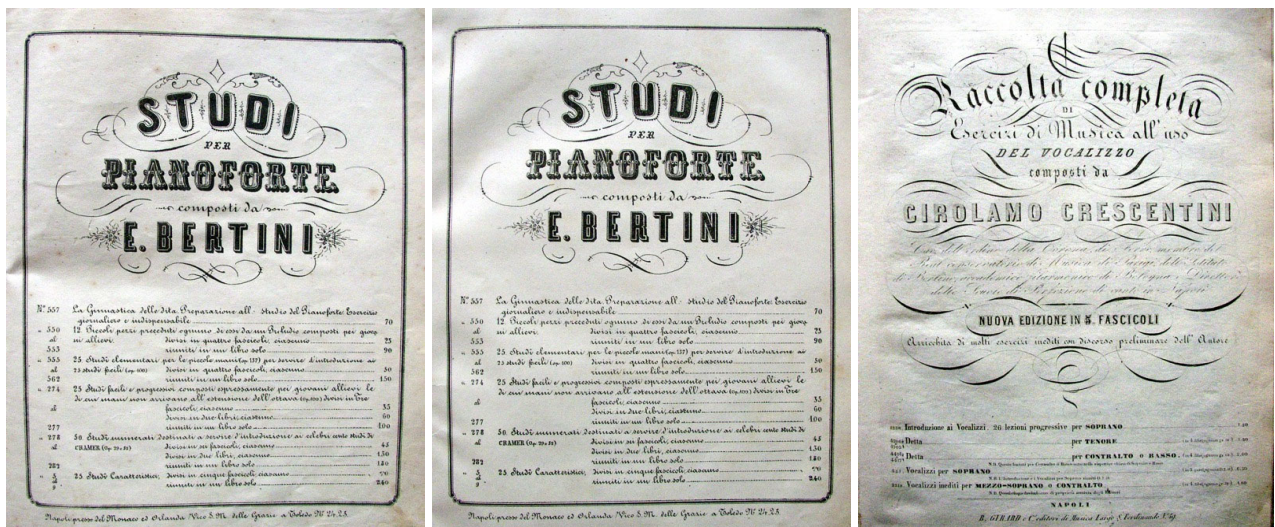 STUDI
PER
PIANOFORTE
composti da
E. BERTINI
Nº 557 La Ginnastica delle dita Preparazione all' studio del Pianoforte Esercizio
giornaliero e indispensabile 70
" 550 12 Piccoli pezzi preceduti ognuno di essi da un Preludio composti per giova
al ni allievi. divisi in quattro fascicoli, ciascuno 25
553 riuniti in un libro solo 90
" 555 25 Studi elementari per le piccole mani (op. 137) per servire d'introduzione ai
al 25 studi facili (op. 100) divisi in quattro fascicoli, ciascuno 50
562 riuniti in un libro solo 150
" 274 25 Studi facili e progressivi composti espressamente per giovani allievi le
di cui mani non arrivano all'estensione dell'ottava (op. 100) divisi in Tre
al fascicoli, ciascuno 35
divisi in due libri, ciascuno 60
277 riuniti in un libro solo 100
" 278 50 Studi numerati destinati a servire d'introduzione ai celebri cento studi di
al CRAMER (Op. 29 e 32) divisi in sei fascicoli, ciascuno 45
divisi in due libri, ciascuno
282 riuniti in un libro solo
25 Studi Caratteristici, divisi in cinque fascicoli, ciascuno
riuniti in un libro solo 240
Napoli presso del Monaco ed Orlando Vico S. M. delle Grazie a Toledo Nº 24, 25
STUDI
PER
PIANOFORTE
composti da
E. BERTINI
Nº 557 La Ginnastica delle dita Preparazione all' studio del Pianoforte Esercizio
giornaliero e indispensabile 70
" 550 12 Piccoli pezzi preceduti ognuno di essi da un Preludio composti per giova
al ni allievi. divisi in quattro fascicoli, ciascuno 25
553 riuniti in un libro solo 90
" 555 25 Studi elementari per le piccole mani (op. 137) per servire d'introduzione ai
al 25 studi facili (op. 100) divisi in quattro fascicoli, ciascuno 50
562 riuniti in un libro solo 150
" 274 25 Studi facili e progressivi composti espressamente per giovani allievi le
di cui mani non arrivano all'estensione dell'ottava (op. 100) divisi in Tre
al fascicoli, ciascuno 35
divisi in due libri, ciascuno 60
277 riuniti in un libro solo 100
" 278 50 Studi numerati destinati a servire d'introduzione ai celebri cento studi di
al CRAMER (Op. 29 e 32) divisi in sei fascicoli, ciascuno 45
divisi in due libri, ciascuno
282 riuniti in un libro solo
25 Studi Caratteristici, divisi in cinque fascicoli, ciascuno
riuniti in un libro solo 240
Napoli presso del Monaco ed Orlando Vico S. M. delle Grazie a Toledo Nº 24, 25
Raccolta completa
DI
Esercizi di Musica all'uso
DEL VOCALIZZO
composti da
GIROLAMO CRESCENTINI
NUOVA EDIZIONE IN FASCICOLI
Arricchita di molti esercizi inediti con discorso preliminare dell' Autore
Introduzione ai Vocalizzi 26 lezioni progressive per SOPRANO
Detta per TENORE
Detta per CONTRALTO o BASSO
Vocalizzi per SOPRANO
Vocalizzi inediti per MEZZO-SOPRANO o CONTRALTO
NAPOLI
B. GIRARD e C.i editori di Musica Largo S. Ferdinando